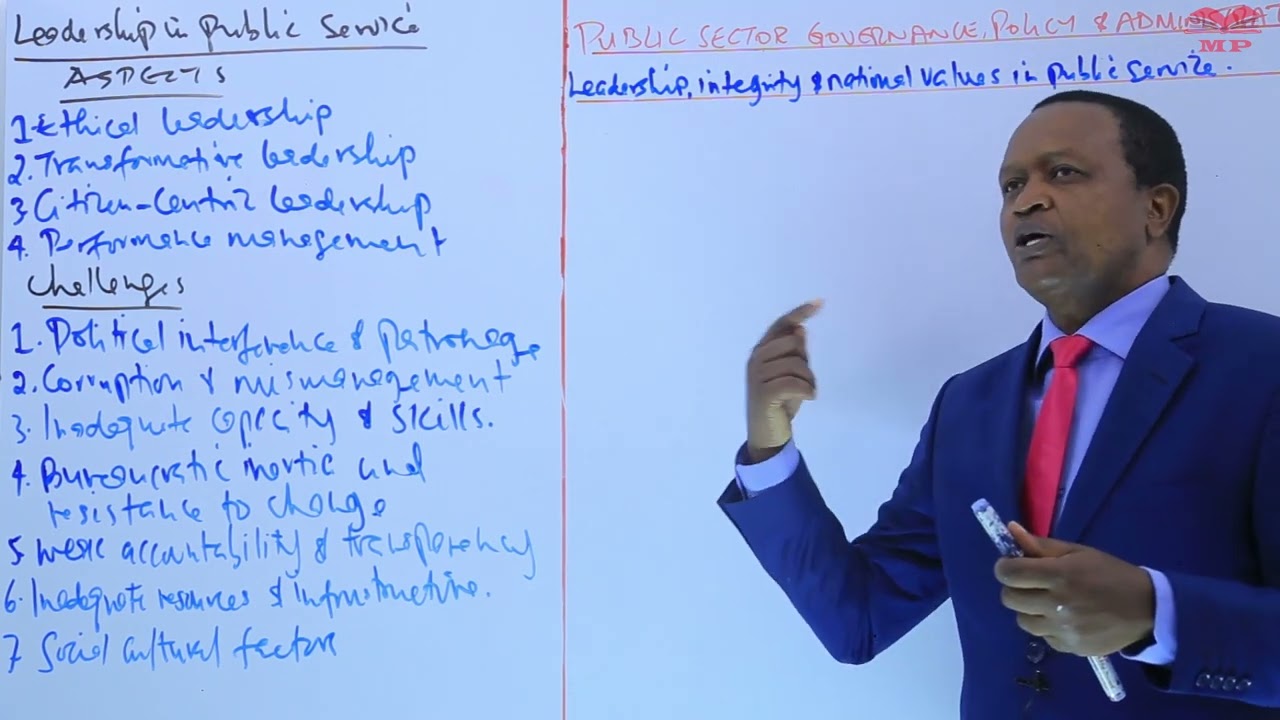 Leadership in public service
ASPECTS
1. Ethical leadership
2. Transformative leadership
3. Citizen-Centric leadership
4. Performance management
Challenges
1. Political interference & patronage
2. Corruption & mismanagement
3. Inadequate capacity & skills.
4. Bureaucratic inertia and
resistance to change
5. weak accountability & transparency
6. Inadequate resources & infrastructure.
7 Social cultural factors
PUBLIC SECTOR GOVERNANCE, POLICY & ADMINISTRAT
Leadership, integrity & national values in public service.
MP